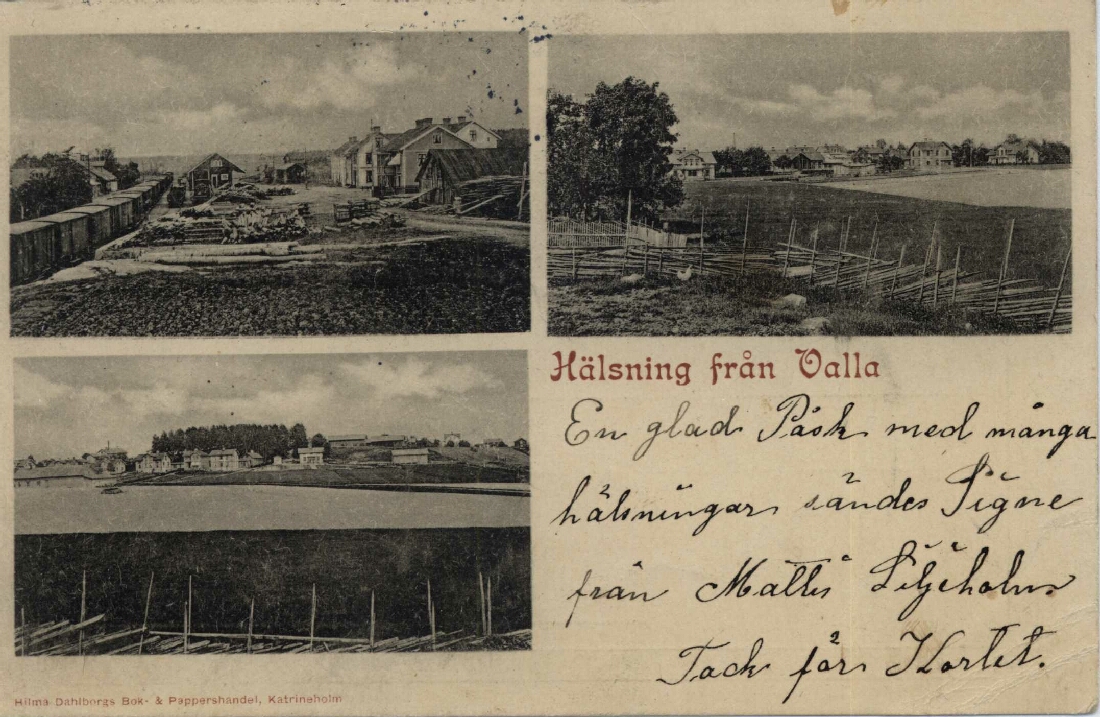 Hälsning från Valla
En glad Påsk med många
hälsningar sändes Signe
från Liljeholm.
Tack för Kortet.
Hilma Dahlborgs Bok- & Pappershandel, Katrineholm